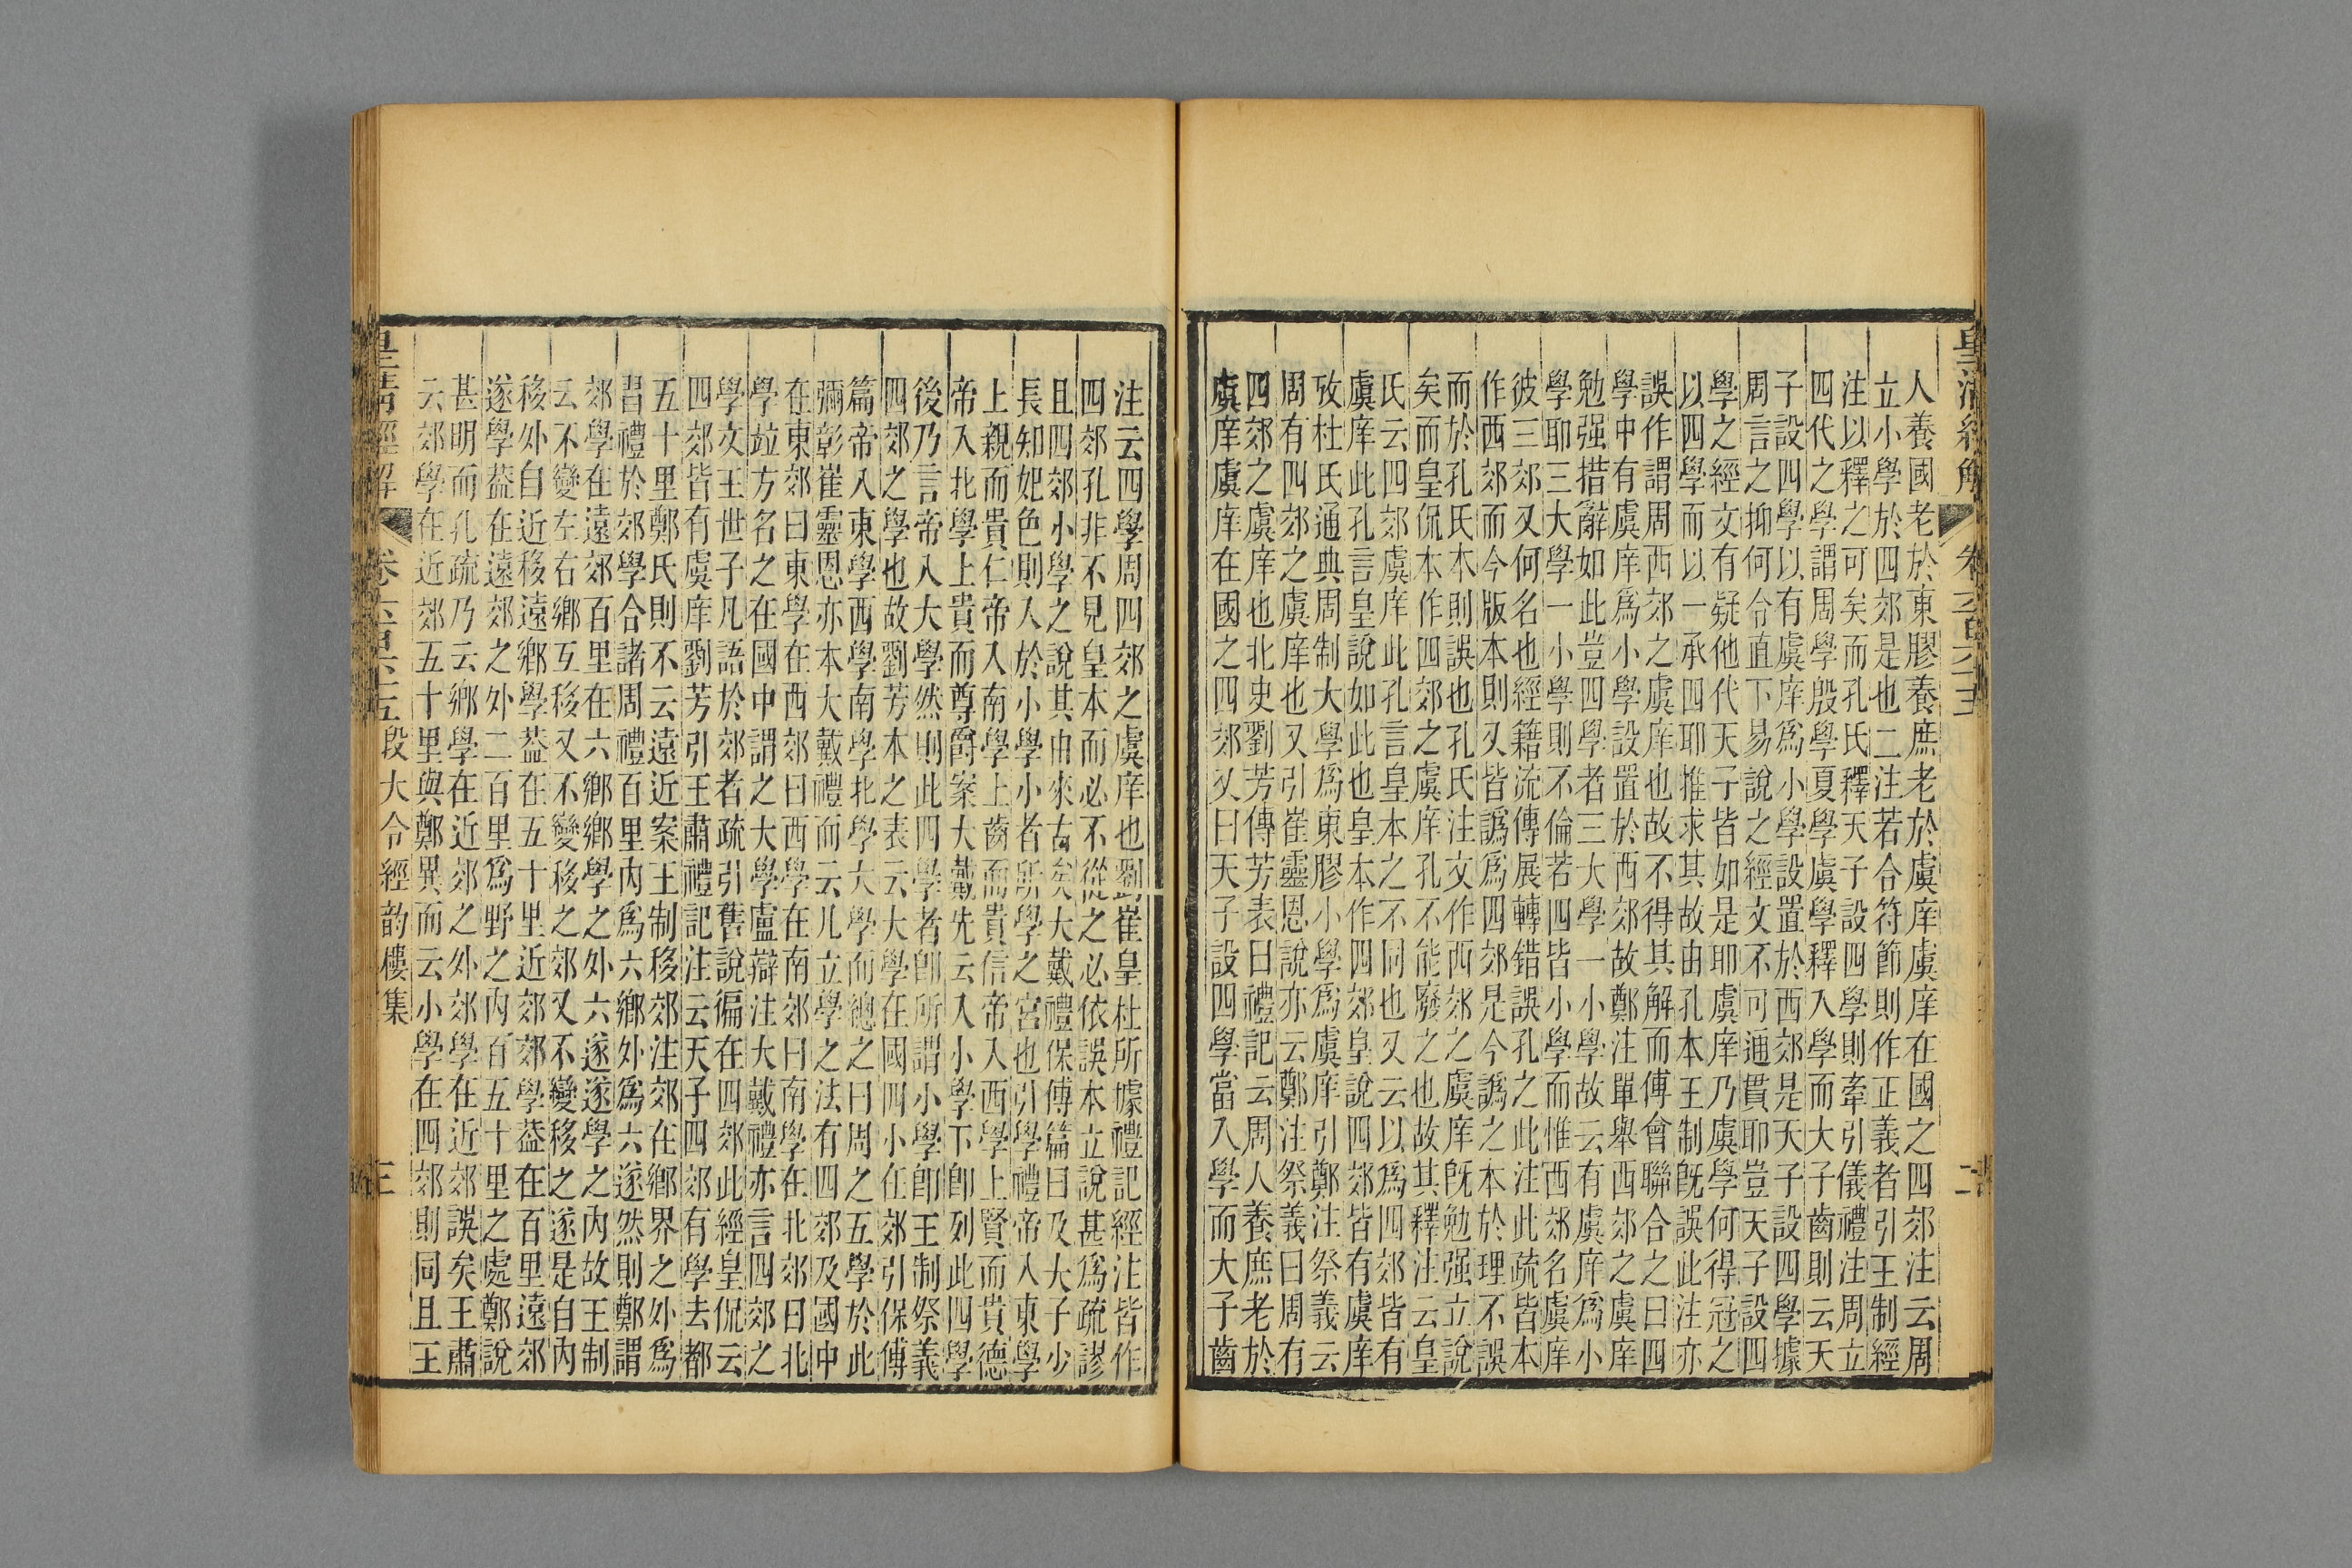 皇清經解　卷六百六十五　二
人養國老於東膠養庶老於虞庠虞庠在國之四郊注云周
立小學於四郊是也二注若合符節則作正義者引王制經
注以釋之可矣而孔氏釋天子設四學則牽引儀禮注周立
四代之學謂周學殷學夏學虞學釋入學而大子齒則云天
子設四學以有虞庠爲小學設置於西郊是天子設四學據
周言之抑何令直下易說之經文不可通貫耶豈天子設四
學之經文有疑他代天子皆如是耶虞庠乃虞學何得冠之
以四學而以一承四耶推求其故由孔本王制旣誤此注亦
誤作謂周西郊之虞庠也故不得其解而傅會聯合之曰四
學中有虞庠爲小學設置於西郊故鄭注單舉西郊之虞庠
勉强措辭如此豈四學者三大學一小學故云有虞庠爲小
學耶三大學一小學則不倫若四皆小學而惟西郊名虞庠
彼三郊又何名也經籍流傳展轉錯誤孔之此注此疏皆本
作西郊而今版本則又皆譌爲四郊是今譌之本於理不誤
而於孔氏本則誤也孔氏注文作西郊之虞庠旣勉强立說
矣而皇侃本作四郊之虞庠孔不能廢之也故其釋注云皇
氏云四郊虞庠此孔言皇本之不同也又云以爲四郊皆有
虞庠此孔言皇說如此也皇本作四郊皇說四郊皆有虞庠
攷杜氏通典周制大學爲東膠小學爲虞庠引鄭注祭義云
周有四郊之虞庠也又引崔靈恩說亦云鄭注祭義曰周有
四郊之虞庠也北史劉芳傳芳表曰禮記云周人養庶老於
虞庠虞庠在國之四郊又曰天子設四學當入學而大子齒
注云四學周四郊之虞庠也劉崔皇杜所據禮記經注皆作
四郊孔非不見皇本而必不從之必依誤本立說甚爲疏謬
且四郊小學之說其由來古矣大戴禮保傅篇曰及大子少
長知妃色則入於小學小者所學之宮也引學禮帝入東學
上親而貴仁帝入南學上齒而貴信帝入西學上賢而貴德
帝入北學上貴而尊爵案大戴先云入小學下卽列此四學
後乃言帝入大學然則此四學者卽所謂小學卽王制祭義
四郊之學也故劉芳本之表云大學在國四小在郊引保傅
篇帝入東學西學南學北學大學而總之曰周之五學於此
彌彰崔靈恩亦本大戴禮而云凡立學之法有四郊及國中
在東郊曰東學在西郊曰西學在南郊曰南學在北郊曰北
學竝方名之在國中謂之大學盧辯注大戴禮亦言四郊之
學文王世子凡語於郊者疏引舊說徧在四郊此經皇侃云
四郊皆有虞庠劉芳引王肅禮記注云天子四郊有學去都
五十里鄭氏則不云遠近案王制移郊注郊在鄉界之外爲
習禮於郊學合諸周禮百里內爲六鄉外爲六遂然則鄭謂
郊學在遠郊百里在六鄉鄉學之外六遂遂學之內故王制
云不變左右鄉互移又不變移之郊又不變移之遂是自內
移外自近移遠鄉學葢在五十里近郊郊學葢在百里遠郊
遂學葢在遠郊之外二百里爲野之內百五十里之處鄭說
甚明而孔疏乃云鄉學在近郊之外郊學在近郊誤矣王肅
云郊學在近郊五十里與鄭異而云小學在四郊則同且王
皇清經解　卷六百六十五　段大令經韵樓集　三